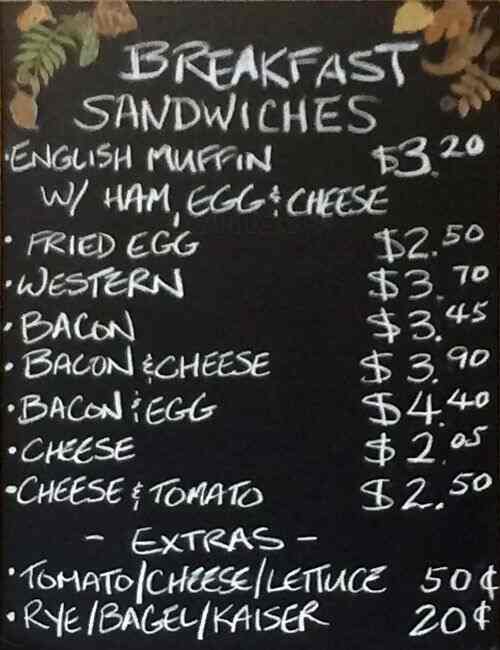 BREAKFAST
SANDWICHES
• ENGLISH MUFFIN $3.20
W/ HAM, EGG & CHEESE
• FRIED EGG $2.50
• WESTERN $3.70
• BACON $3.45
• BACON & CHEESE $3.90
• BACON & EGG $4.40
• CHEESE $2.05
• CHEESE & TOMATO $2.50
- EXTRAS -
• TOMATO/CHEESE/LETTUCE 50¢
• RYE/BAGEL/KAISER 20¢